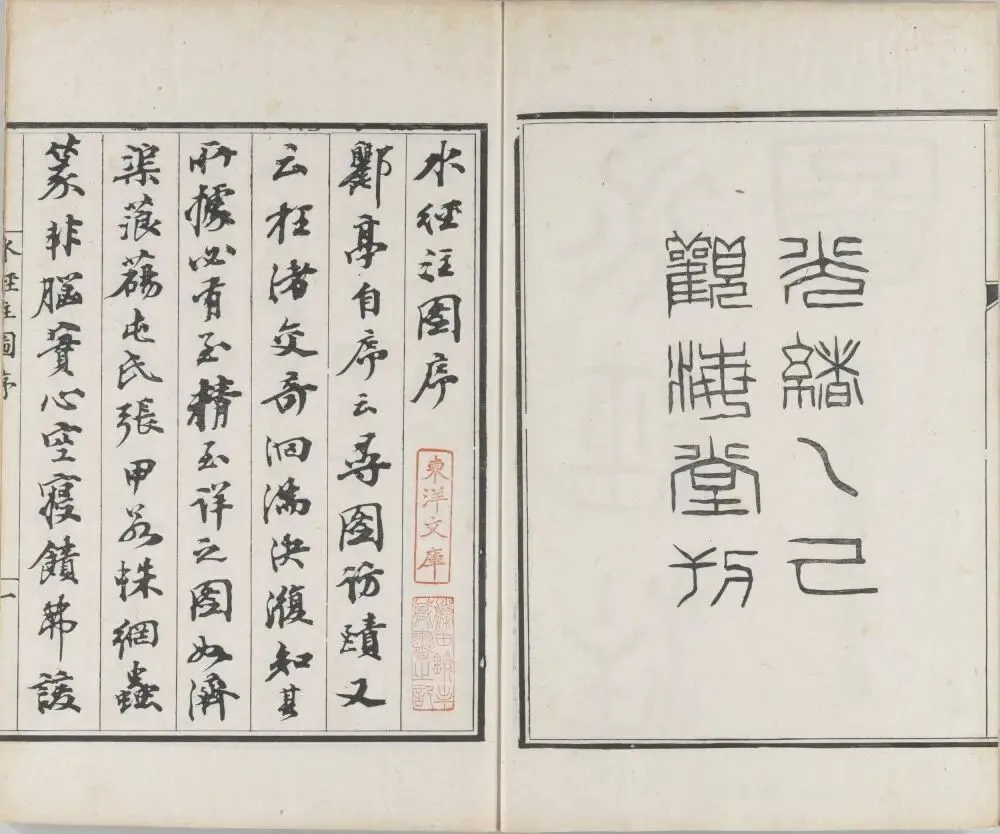 光緒乙巳
觀海堂刊
水經注圖序
東洋文庫
藤田
藏書之記
酈亭自序云尋圖訪賾又
云枉渚交奇洄湍決澓知其
所據必有至精至詳之圖如濟
渠蒗蕩屯氏張甲若蛛網蟲
篆非腦實心空寢饋弗諼
水經注圖序
一